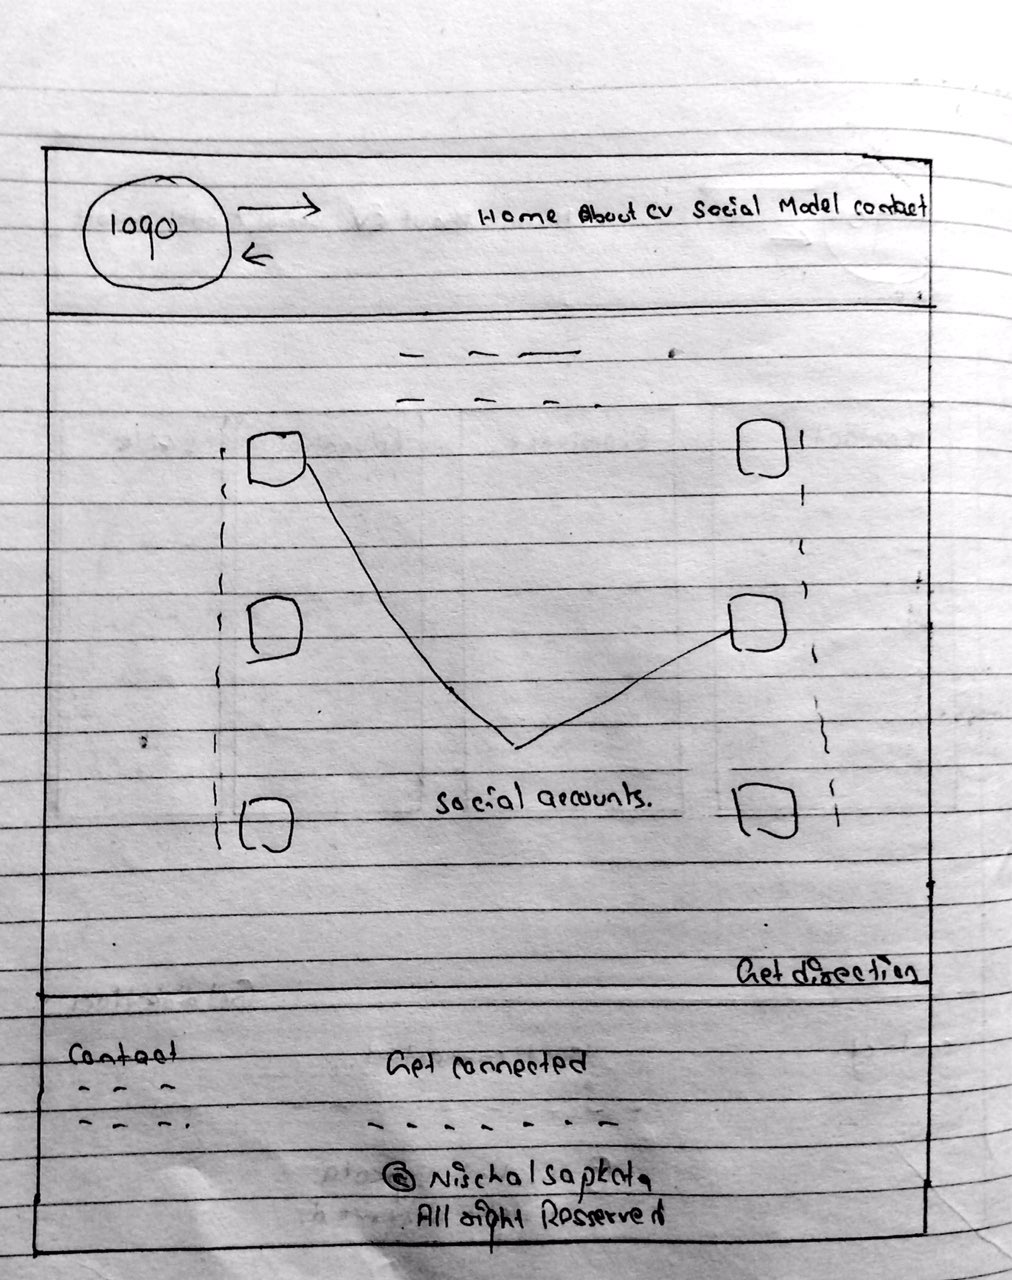 logo
Home About CV Social Model contact
social accounts.
Get direction
Contact
Get connected
© Nischal sapkota
All right Resserved